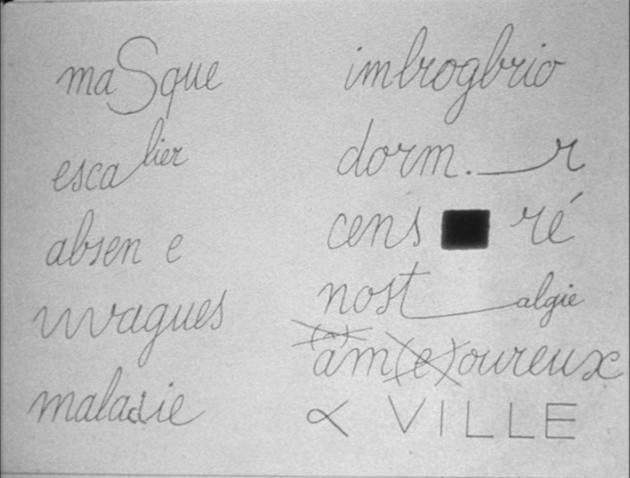 maSque
escalier
absen e
vvvagues
maladie
imbrogbrio
dorm._r
cens ■ ré
nost_algie
(^)
am(e)oureux
∝ VILLE